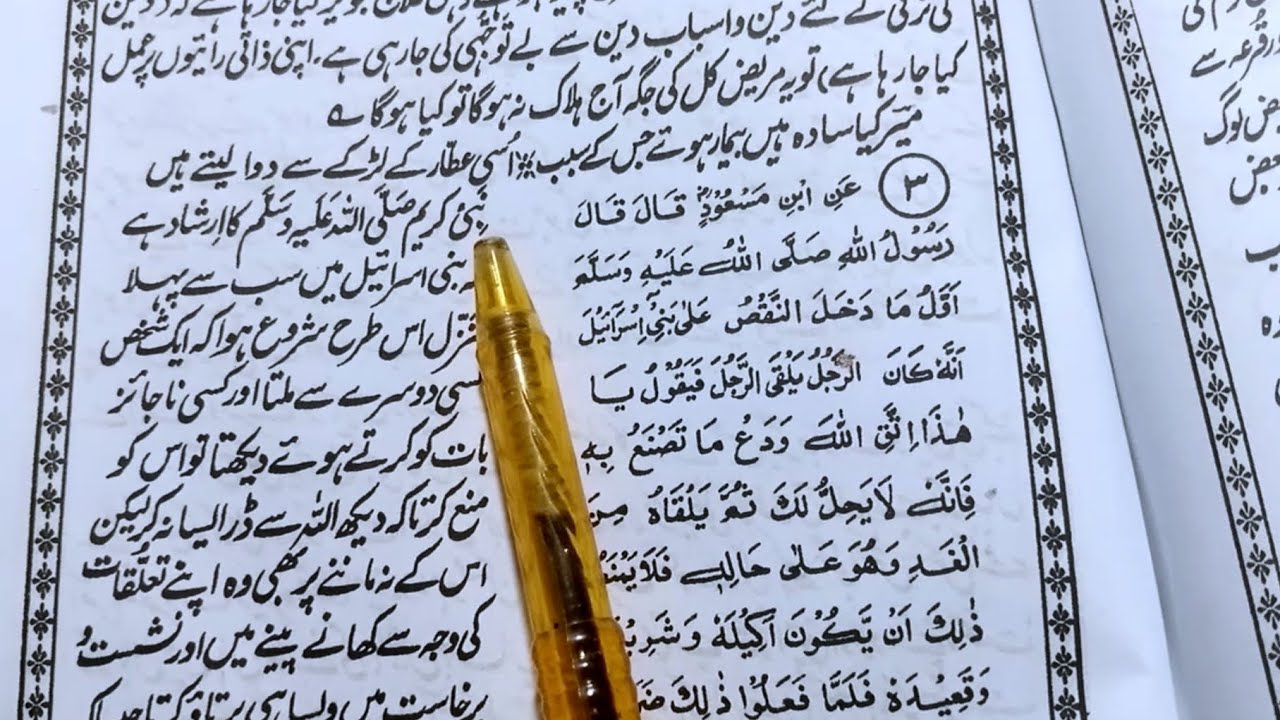 کی ترقی کے لئے دین و اسباب دین سے بے توجہی کی جارہی ہے۔ اپنی ذاتی رائیوں پر عمل
کیا جا رہا ہے) تو یہ مریض کل کی جگہ آج ہلاک نہ ہوگا تو کیا ہوگا ؎
میرؔ کیا سادہ ہیں بیمار ہوتے جس کے سبب ٭٭ اُسی عطّار کے لڑکے سے دوا لیتے ہیں
۳ عَنِ ابْنِ مَسْعُوْدٍؓ قَالَ قَالَ
رَسُوْلُ اللّٰهِ صَلَّى اللّٰهُ عَلَيْهِ وَسَلَّمَ
اَوَّلُ مَا دَخَلَ النَّقْصُ عَلٰى بَنِيْٓ اِسْرَآئِيْلَ
اَنَّهٗ كَانَ الرَّجُلُ يَلْقَى الرَّجُلَ فَيَقُوْلُ يَا
هٰذَا اِتَّقِ اللّٰهَ وَدَعْ مَا تَصْنَعُ بِهٖ
فَاِنَّهٗ لَا يَحِلُّ لَكَ ثُمَّ يَلْقَاهُ مِنَ
الْغَدِ وَهُوَ عَلٰى حَالِهٖ
ذٰلِكَ اَنْ يَّكُوْنَ اَكِيْلَهٗ
وَقَعِيْدَهٗ فَلَمَّا فَعَلُوْا ذٰلِكَ
نبیٔ کریم صَلَّی اللہُ عَلَیہِ وَسَلَّم کا اِرشاد ہے
بنی اسرائیل میں سب سے پہلا
تنزّل اس طرح شروع ہوا کہ ایک شخص
کسی دوسرے سے ملتا اور کسی ناجائز
بات کو کرتے ہوئے دیکھتا تو اس کو
منع کرتا کہ دیکھ اللہ سے ڈر ایسا نہ کر لیکن
اس کے نہ ماننے پر بھی وہ اپنے تعلّقات
کی وجہ سے کھانے پینے میں اور نشست و
برخاست میں ویسا ہی برتاؤ کرتا